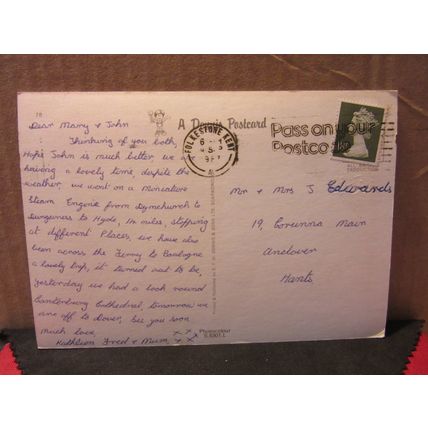 Dear Marry & John
Thinking of you both,
Hope John is much better, we
having a lovely time, despite the
weather, we went on a Miniature
Steam Engine from Dymchurch to
Dungeness to Hyde, 14 miles, stopping
at different Places, we have also
been across the Ferry to Boulogne
a lovely trip, it turned out to be,
yesterday we had a look round
Canterbury Cathedral, tomorrow we
are off to Dover, See you soon
much love
Kathleen Fred & Mum x x x x
A Dennis Postcard
FOLKESTONE KENT
Pass on your
Postco
Mr & Mrs J Edwards
19, Corunna Main
Andover
Hants
Photocolour